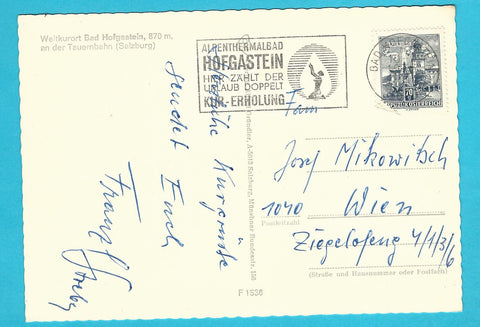 Weltkurort Bad Hofgastein, 870 m.
an der Tauernbahn (Salzburg)
ALPENTHERMALBAD
HOFGASTEIN
HIER ZÄHLT DER
URLAUB DOPPELT
KUR - ERHOLUNG
BAD
REPUBLIK ÖSTERREICH
Herzliche Kurgrüße
sendet Euch
Franz
A-5013 Salzburg, Münchner Bundesstr. 156
F 1536
Fam
Josef Mikowitsch
1040 Wien
Postleitzahl
Ziegelofeng 4/1/3/6
(Straße und Hausnummer oder Postfach)